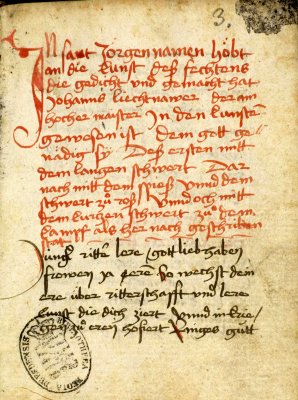 3.
In sant Jorgen namen höbt
an die kunst deß fechtens
die gedicht und gemacht hat
Johanns liechtnawer der ain
hocher maister In den künsten
gewesen ist dem gott ge-
nädig sÿ Des ersten mitt
dem langen schwert Dar
nach mitt dem spieß vnnd dem
schwert zů roß Vnnd och mitt
dem kurtzen schwert zů dem
kampff als her nach geschriben
stät
Jungk ritter lere / gott lieb haben
frowen ja eere / So wechst dein
ere über ritterschafft und lere
kunst die dich ziert vnnd in krie-
gen zu eren hofiert Ringes gůtt